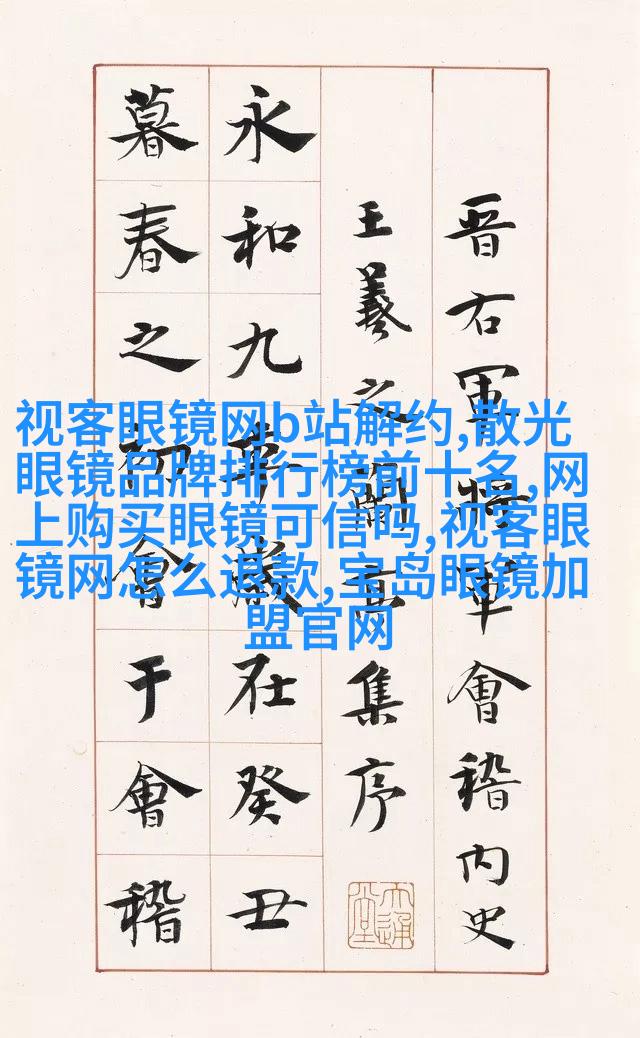 晋右軍將軍會稽内史
王羲之蘭亭集序
永和九年歲在癸丑
暮春之初會于會稽
视客眼镜网b站解约,散光
眼镜品牌排行榜前十名,网
上购买眼镜可信吗,视客眼
镜网怎么退款,宝岛眼镜加
盟官网